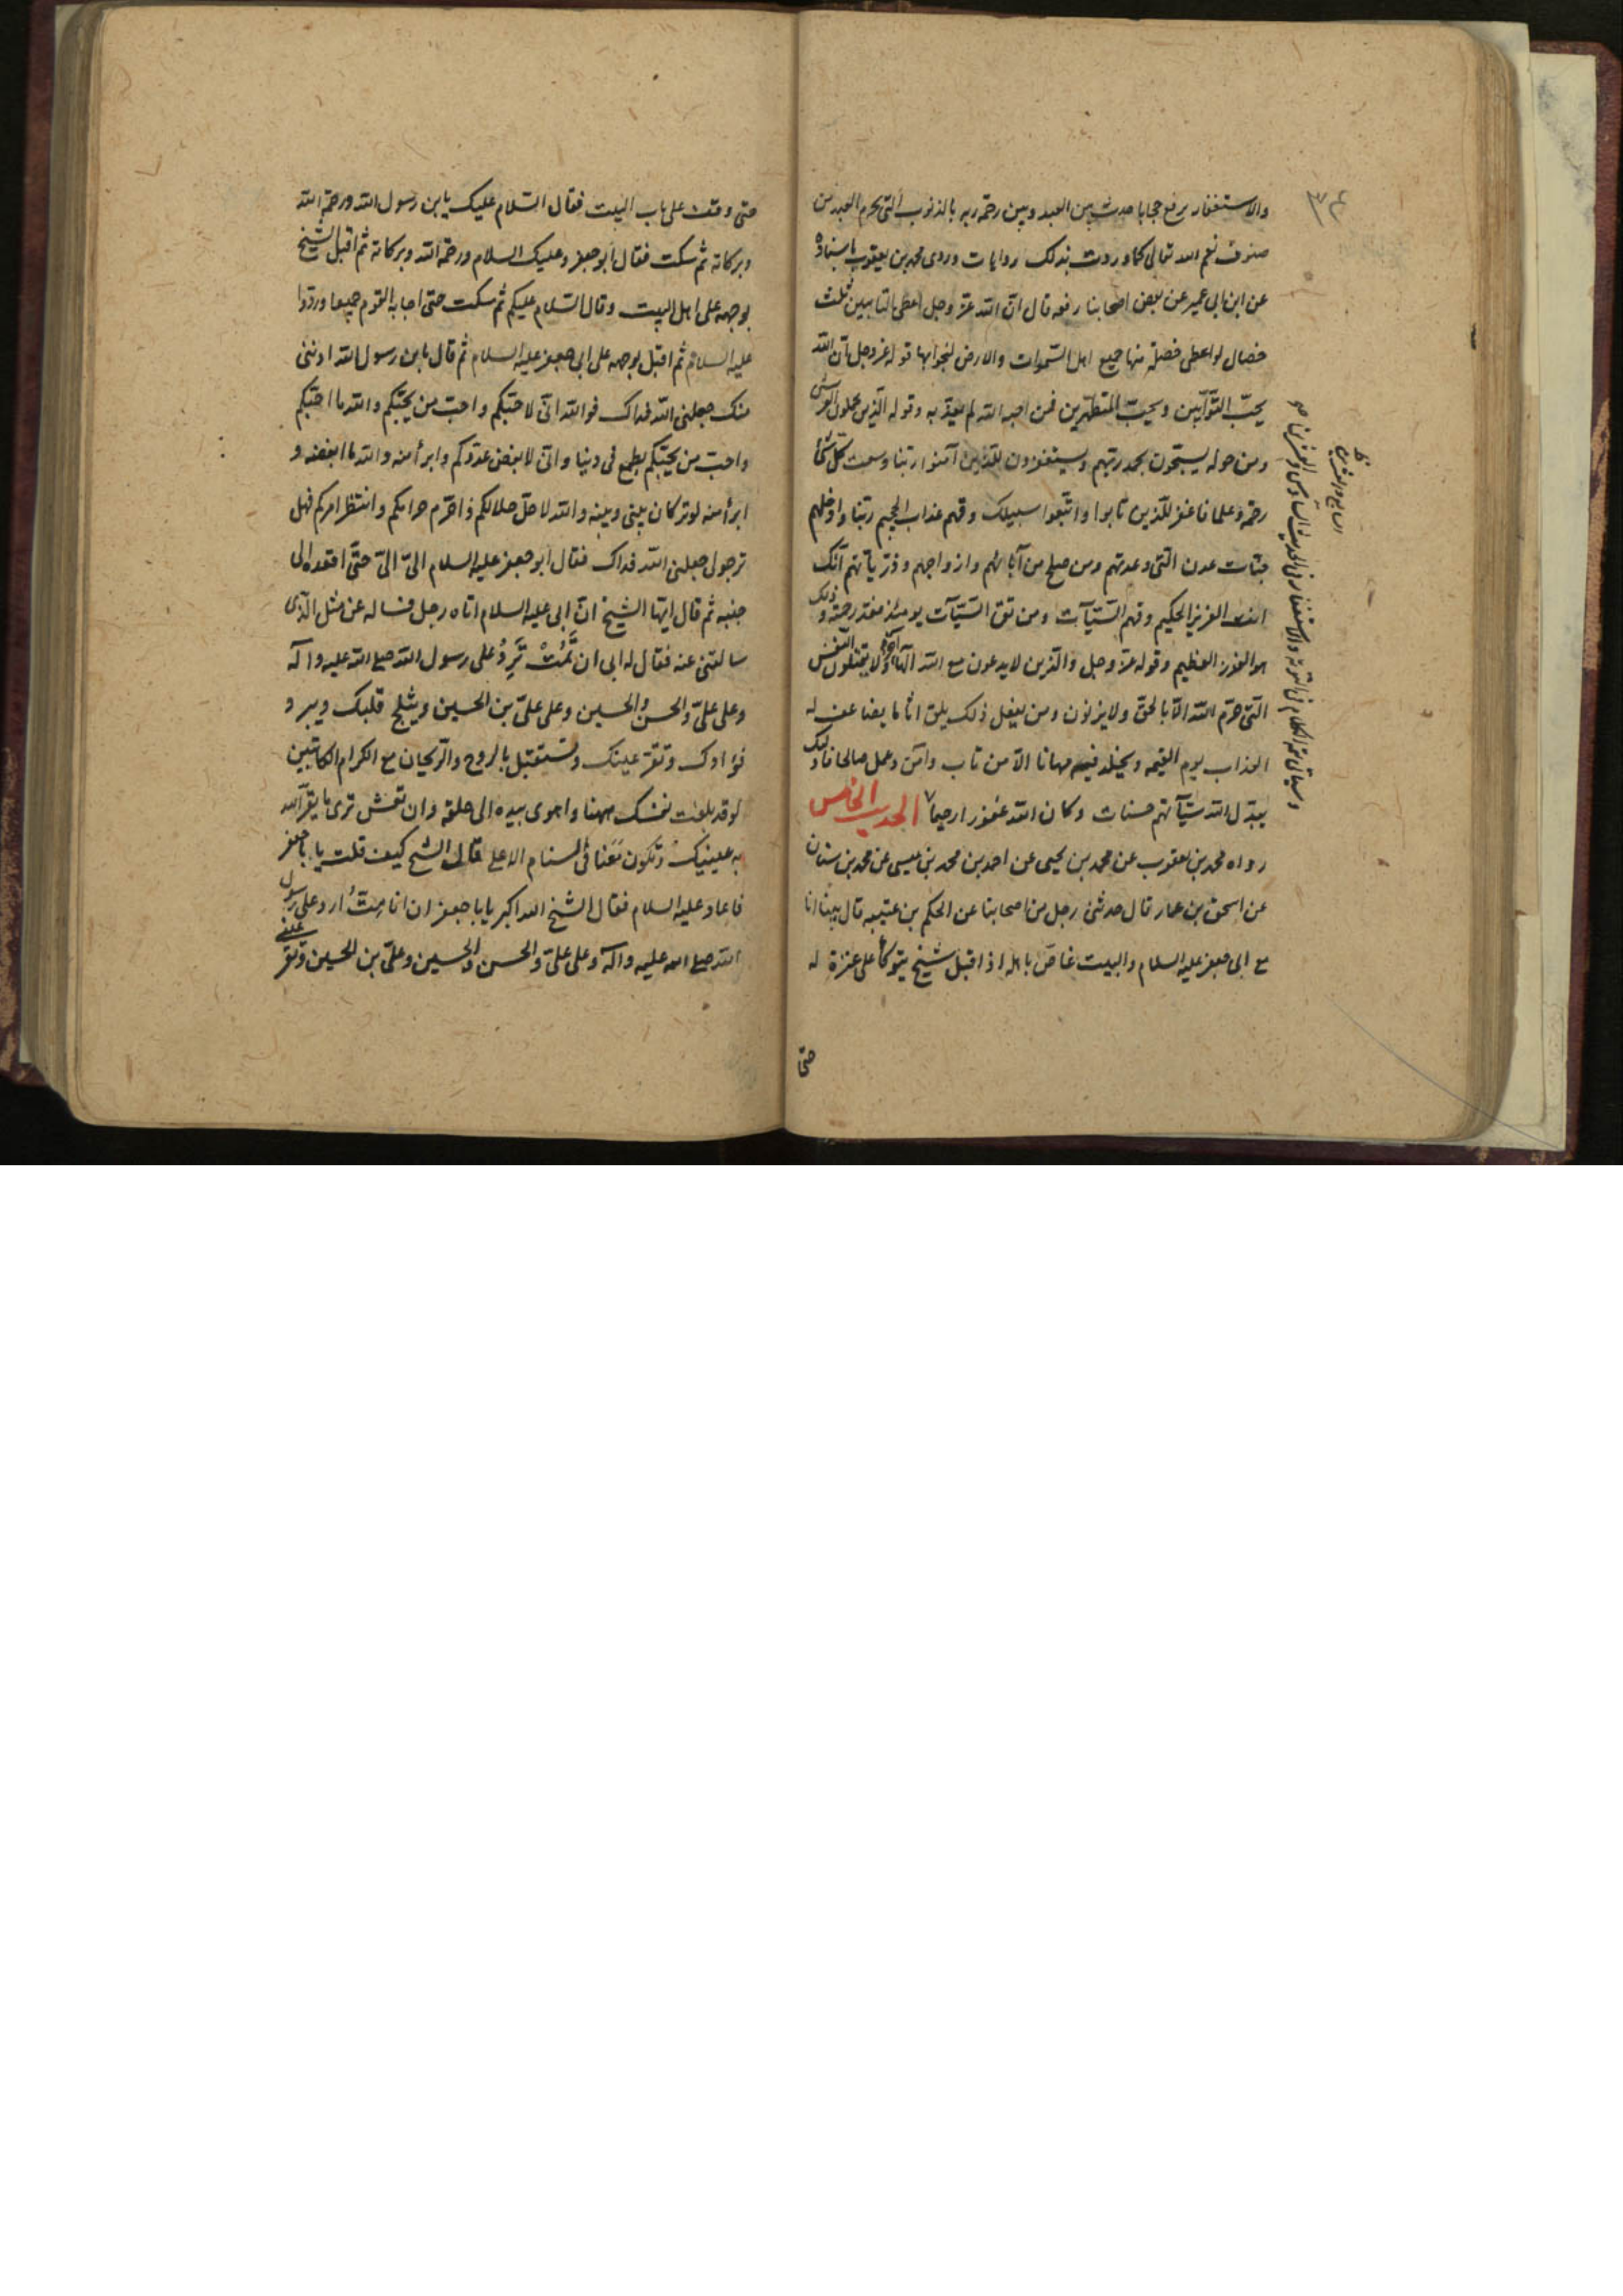 ۳۴
والاستغفار يرفع حجابا حدث بين العبد وبين رحمة ربه بالذنوب التى يحرم العبد من
صنوف نعم الله تعالى كما وردت بذلك روايات وروى محمد بن يعقوب باسناده
عن ابن ابى عمير عن بعض اصحابنا رفعه قال انّ الله عزّ وجل اعطى التائبين ثلث
خصال لو اعطى خصلة منها جميع اهل السّموات والارض لنجوا بها قوله عز وجل انّ الله
يحبّ التّوّابين ويحبّ المتطهّرين فمن احبه الله لم يعذبه وقوله الّذين يحملون العرش
ومن حوله يسبّحون بحمد ربّهم ويستغفرون للّذين آمنوا ربّنا وسعت كلّ شئ
رحمة وعلما فاغفر للّذين تابوا واتّبعوا سبيلك وقهم عذاب الجحيم ربّنا وادخلهم
جنّات عدن الّتى وعدتهم ومن صلح من آبائهم وازواجهم وذرّياتهم انّك
انت العزيز الحكيم وقهم السّيّآت ومن تق السّيّآت يومئذ فقد رحمته وذلك
هو الفوز العظيم وقوله عزّ وجل والّذين لا يدعون مع الله الها آخر ولا يقتلون النّفس
الّتى حرّم الله الّا بالحق ولا يزنون ومن يفعل ذلك يلق اثاما يضاعف له
العذاب يوم القيمه ويخلد فيه مهانا الّا من تاب وآمن وعمل صالحا فاولئك
يبدّل الله سيّآتهم حسنات وكان الله غفورا رحيما الحديث الخامس
رواه محمد بن يعقوب عن محمد بن يحيى عن احمد بن محمد بن عيسى عن محمد بن سنان
عن اسحق بن عمار قال حدثنى رجل من اصحابنا عن الحكم بن عتيبه قال بينا انا
مع ابى جعفر عليه السلام والبيت غاصّ باهله اذا قبل شيخ يتوكأ على عنزة له
حتى
وسياتى تتمة الكلام فى التوبة والاستغفار فى الحديث السادس والعشرين
السابع والعشرين
حتى وقف على باب البيت فقال السّلام عليك يابن رسول الله ورحمة الله
وبركاته ثم سكت فقال ابو جعفر وعليك السلام ورحمة الله وبركاته ثم اقبل الشيخ
بوجهه على اهل البيت وقال السّلام عليكم ثم سكت حتى اجابه القوم جميعا وردّوا
عليه السلام ثم اقبل بوجهه على ابى جعفر عليه السلام ثم قال يابن رسول الله ادننى
منك جعلنى الله فداك فوالله انّى لاحبّكم واحبّ من يحبّكم ووالله ما احبّكم
واحبّ من يحبّكم لطمع فى دنيا وانّى لابغض عدوّكم وابرأ منه ووالله ما ابغضه و
ابرأ منه لوتر كان بينى وبينه والله لاحلّ حلالكم واحرّم حرامكم وانتظر امركم فهل
ترجولى جعلنى الله فداك فقال ابو جعفر عليه السلام الىّ الىّ حتّى اقعده الى
جنبه ثم قال ايّها الشيخ انّ ابى عليه السلام اتاه رجل فساله عن مثل الّذى
سالتنى عنه فقال له ابى ان تَمُتْ تَرِدُ على رسول الله صلى الله عليه وآله
وعلى علىّ والحسن والحسين وعلى علىّ بن الحسين ويثلج قلبك ويبرد
فؤادك وتقرّ عينك وتستقبل بالروح والرّيحان مع الكرام الكاتبين
لو قد بلغت نفسك ههنا واهوى بيده الى حلقه وان تعش ترى ما يقرّ الله
به عينيك وتكون معنا فى السنام الاعلى قال الشيخ كيف قلت يا با جعفر
فاعاد عليه السلام فقال الشيخ الله اكبر يا با جعفر ان انا مِتُّ ارد على رسول
الله صلى الله عليه وآله وعلى علىّ والحسن والحسين وعلىّ بن الحسين وتقر عينى